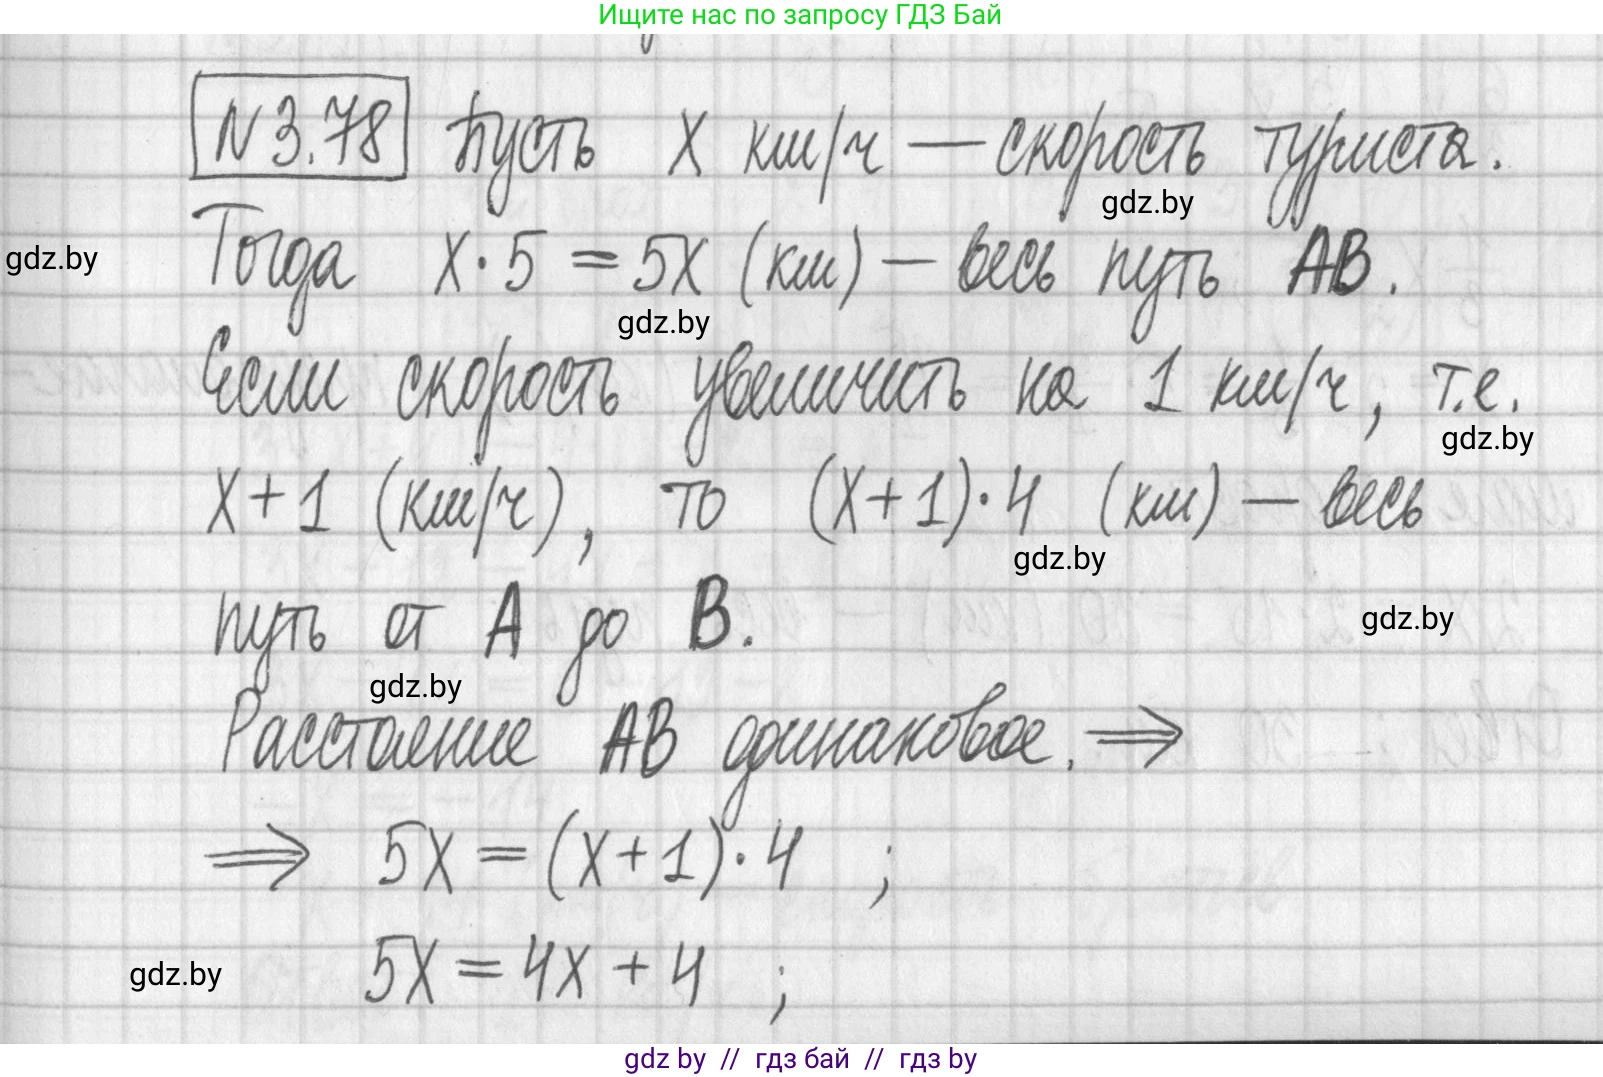 Ищите нас по запросу ГДЗ Бай
N 3.78 Пусть x км/ч — скорость туриста.
gdz.by
Тогда x·5 = 5x (км) — весь путь AB.
gdz.by
gdz.by
Если скорость увеличить на 1 км/ч, т.е.
gdz.by
x+1 (км/ч), то (x+1)·4 (км) — весь
gdz.by
путь от A до B.
gdz.by
gdz.by
Расстояние AB одинаковое. ⇒
⇒ 5x = (x+1)·4 ;
5x = 4x + 4 ;
gdz.by
gdz by // гдз бай // гдз by